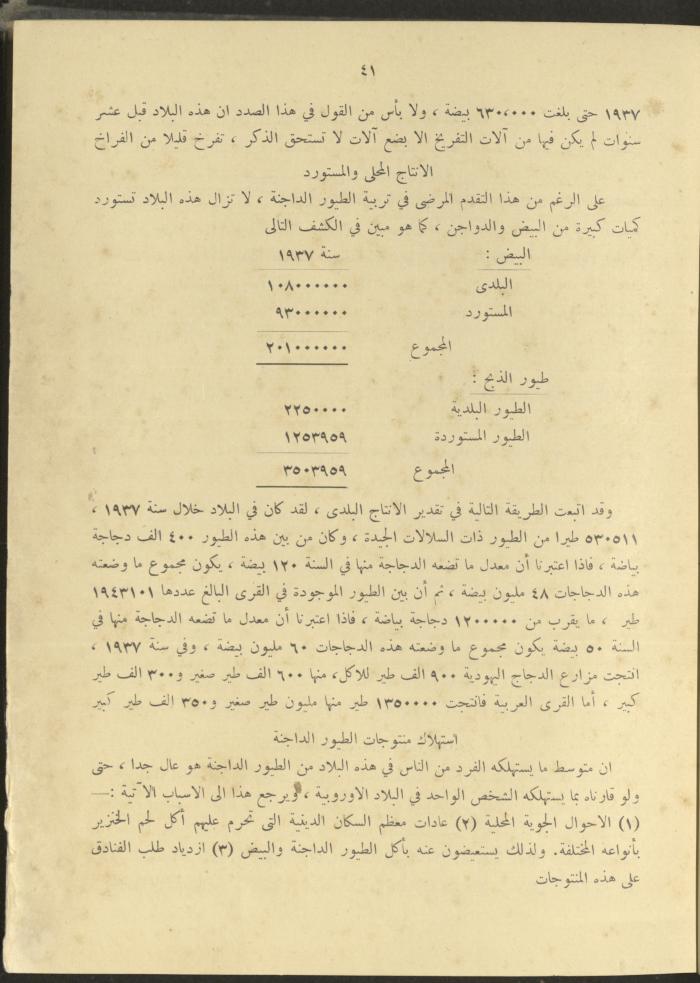 ٤١
١٩٣٧ حتى بلغت ٦٣٠،٠٠٠ بيضة ، ولا بأس من القول في هذا الصدد ان هذه البلاد قبل عشر
سنوات لم يكن فيها من آلات التفريخ الا بضع آلات لا تستحق الذكر ، تفرخ قليلا من الفراخ
الانتاج المحلى والمستورد
على الرغم من هذا التقدم المرضى في تربية الطيور الداجنة ، لا تزال هذه البلاد تستورد
كميات كبيرة من البيض والدواجن ، كما هو مبين في الكشف التالى
البيض : سنة ١٩٣٧
البلدى ١٠٨٠٠٠٠٠٠
المستورد ٩٣٠٠٠٠٠٠
المجموع ٢٠١٠٠٠٠٠٠
طيور الذبح :
الطيور البلدية ٢٢٥٠٠٠٠
الطيور المستوردة ١٢٥٣٩٥٩
المجموع ٣٥٠٣٩٥٩
وقد اتبعت الطريقة التالية في تقدير الانتاج البلدى ، لقد كان في البلاد خلال سنة ١٩٣٧ ،
٥٣٠٥١١ طيرا من الطيور ذات السلالات الجيدة ، وكان من بين هذه الطيور ٤٠٠ الف دجاجة
بياضة ، فاذا اعتبرنا أن معدل ما تضعه الدجاجة منها في السنة ١٢٠ بيضة ، يكون مجموع ما وضعته
هذه الدجاجات ٤٨ مليون بيضة ، ثم أن بين الطيور الموجودة في القرى البالغ عددها ١٩٤٣١٠١
طير ، ما يقرب من ١٢٠٠٠٠٠ دجاجة بياضة ، فاذا اعتبرنا أن معدل ما تضعه الدجاجة منها في
السنة ٥٠ بيضة يكون مجموع ما وضعته هذه الدجاجات ٦٠ مليون بيضة ، وفي سنة ١٩٣٧ ،
انتجت مزارع الدجاج اليهودية ٩٠٠ الف طير للاكل، منها ٦٠٠ الف طير صغير و٣٠٠ الف طير
كبير ، أما القرى العربية فانتجت ١٣٥٠٠٠٠ طير منها مليون طير صغير و٣٥٠ الف طير كبير
استهلاك منتوجات الطيور الداجنة
ان متوسط ما يستهلكه الفرد من الناس في هذه البلاد من الطيور الداجنة هو عال جدا ، حتى
ولو قارناه بما يستهلكه الشخص الواحد في البلاد الاوروبية ، ويرجع هذا الى الاسباب الآتية :—
(١) الاحوال الجوية المحلية (٢) عادات معظم السكان الدينية التى تحرم عليهم أكل لحم الخنزير
بأنواعه المختلفة. ولذلك يستعيضون عنه بأكل الطيور الداجنة والبيض (٣) ازدياد طلب الفنادق
على هذه المنتوجات